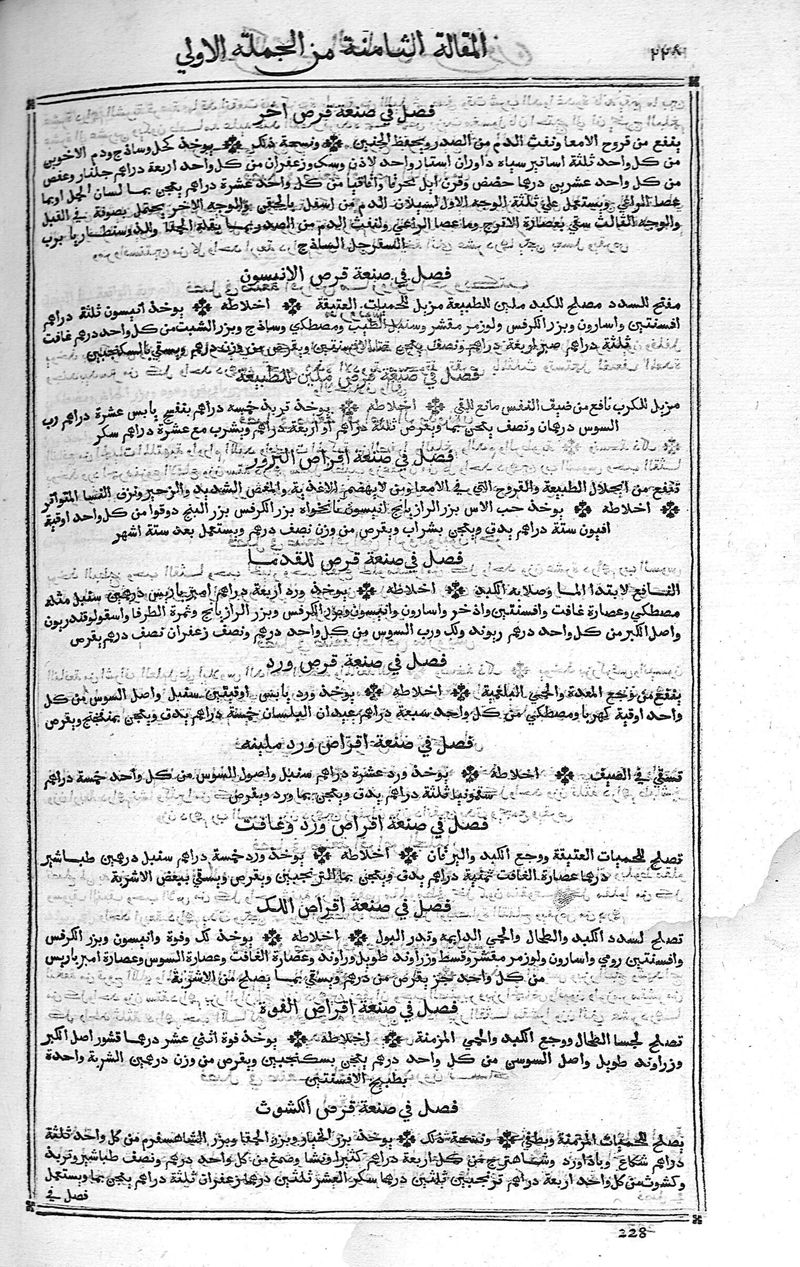 المقالة الثامنة من الجملة الاولي
٢٢٨
فصل في صنعة قرص اخر
ينفع من قروح الامعا ونفث الدم من الصدر ويحفظ الجنين ونسخة ذلك يوخذ كحل وساذج ودم الاخوين
من كل واحد ثلثة اساتير سياه داوران استار واحد لاذن وسك وزعفران من كل واحد اربعة دراهم جلنار وعفص
من كل واحد عشرين درهما حضض وقرن ايل محرقا واقاقيا من كل واحد عشرة دراهم يعجن بما لسان الحمل اوبما
عصا الراعي ويستعمل علي ثلثة الوجه الاول لسيلان الدم من اسفل بالحقن والوجه الاخر يحتمل بصوفة في القبل
والوجه الثالث سقي بعصارة وما عصا الراعي ولنفث الدم من الصدر بما بقلة الحمقا برب
السفرجل الساذج
فصل في صنعة قرص الانيسون
مفتح للسدد مصلح للكبد ملين للطبيعة مزيل للحميات العتيقة اخلاطه يوخذ انيسون ثلثة دراهم
افسنتين واسارون وبزر الكرفس ولوز مر مقشر وسنبل الطيب ومصطكي وساذج وبزر الشبت من كل واحد درهم غافت
ثلثة دراهم صبر اربعة دراهم ونصف يعجن بما الافسنتين ويقرص من وزن درهم ويسقي بالسكنجبين
فصل في صنعة قرص ملين للطبيعة
مزيل للكرب نافع من ضيف النفس مانع للقي اخلاطه يوخذ تربد خمسة دراهم بنفسج يابس عشرة دراهم رب
السوس درهمان ونصف يعجن بما ويقرص ثلثة دراهم او اربعة دراهم ويشرب مع عشرة دراهم سكر
فصل في صنعة اقراص البزور
تنفع من انحلال الطبيعة والقروح التي في الامعا ومن لا يهضم الاغذية والمغص الشديد والزحير ونزف النسا المتواتر
اخلاطه يوخذ حب الاس بزر الرازيانج انيسون نانخواه بزر الكرفس بزر البنج دوقوا من كل واحد اوقية
افيون ستة دراهم يدق ويعجن بشراب ويقرص من وزن نصف درهم ويستعمل بعد ستة اشهر
فصل في صنعة قرص للقدما
النافع لابتدا الما وصلابة الكبد اخلاطه يوخذ ورد اربعة دراهم امبر باريس درهمين سنبل مثله
مصطكي وعصارة غافت وافسنتين واذخر واسارون وانيسون وبزر الكرفس وبزر الرازيانج وثمرة الطرفا واسقولوقندريون
واصل الكبر من كل واحد درهم ريوند ولك ورب السوس من كل واحد درهم ونصف زعفران نصف درهم يقرص
فصل في صنعة قرص ورد
ينفع من وجع المعدة والحمي البلغمية اخلاطه يوخذ ورد يابس اوقيتين سنبل واصل السوس من كل
واحد اوقية كهربا ومصطكي من كل واحد سبعة دراهم عيدان البلسان خمسة دراهم يدق ويعجن بمثفج ويقرص
فصل في صنعة اقراص ورد ملينه
تسقي في الصيف اخلاطه يوخذ ورد عشرة دراهم سنبل واصول السوس من كل واحد خمسة دراهم
سقمونيا ثلثة دراهم يدق ويعجن بما ورد ويقرص
فصل في صنعة اقراص ورد وغافت
تصلح للحميات العتيقة ووجع الكبد واليرقان اخلاطه يوخذ ورد خمسة دراهم سنبل درهمين طباشير
درهما عصارة الغافت ثمنية دراهم يدق ويعجن بما الترنجبين ويقرص ويسقي ببعض الاشربة
فصل في صنعة اقراص اللك
تصلح لسدد الكبد والطحال والحمي الدايمه وتدر البول اخلاطه يوخذ لك وفوة وانيسون وبزر الكرفس
وافسنتين رومي واسارون ولوز مر مقشر وقسط وزراوند طويل وراوند وعصارة الغافت وعصارة السوس وعصارة امبر باريس
من كل واحد جز يقرص من درهم ويسقي بما يصلح من الاشربة
فصل في صنعة اقراص الفوة
تصلح لجسا الطحال ووجع الكبد والحمي المزمنة اخلاطه يوخذ فوة اثني عشر درهما قشور اصل الكبر
وزراوند طويل واصل السوسن من كل واحد درهم يعجن بسكنجبين ويقرص من وزن درهمين الشربة واحدة
بطبيخ الافسنتين
فصل في صنعة قرص الكشوث
يصلح للحميات المزمنة ونسخة ذلك يوخذ بزر الخيار وبزر الحمقا وبزر الشاهسفرم من كل واحد ثلثة
دراهم شكاع وباذاورد وشاهترج من كل اربعة دراهم كثيرا ونشا وصمغ من كل واحد درهم ونصف طباشير وتربد
وكشوث من كل واحد اربعة دراهم ترنجبين ثلثين درهما سكر العشر ثلثين درهما زعفران ثلثة دراهم يعجن بما ويستعمل
فصل في
228